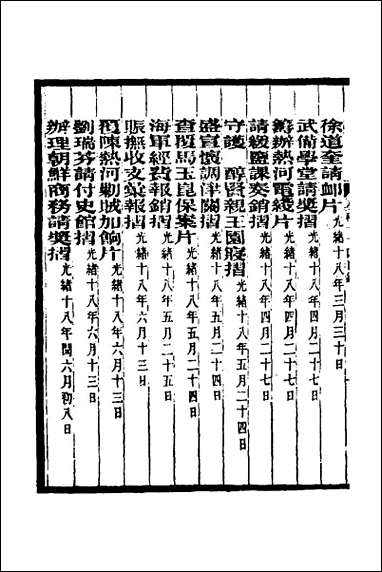 徐道奎請卹片光緒十八年三月三十日
武備學堂請奬摺光緒十八年四月二十七日
籌辦熱河電綫片光緒十八年四月二十七日
請緩鹽課奏銷摺光緒十八年四月二十七日
守護　醇賢親王園寢摺光緒十八年五月二十四日
盛宣懷調津關摺光緒十八年五月二十四日
查覆馬玉崑保案片光緒十八年五月二十四日
海軍經費報銷摺光緒十八年五月二十五日
賑撫收支彙報摺光緒十八年六月十三日
覆陳熱河勦城加餉片光緒十八年六月十三日
劉瑞芬請付史館摺光緒十八年六月十三日
辦理朝鮮商務請奬摺光緒十八年閏六月初八日